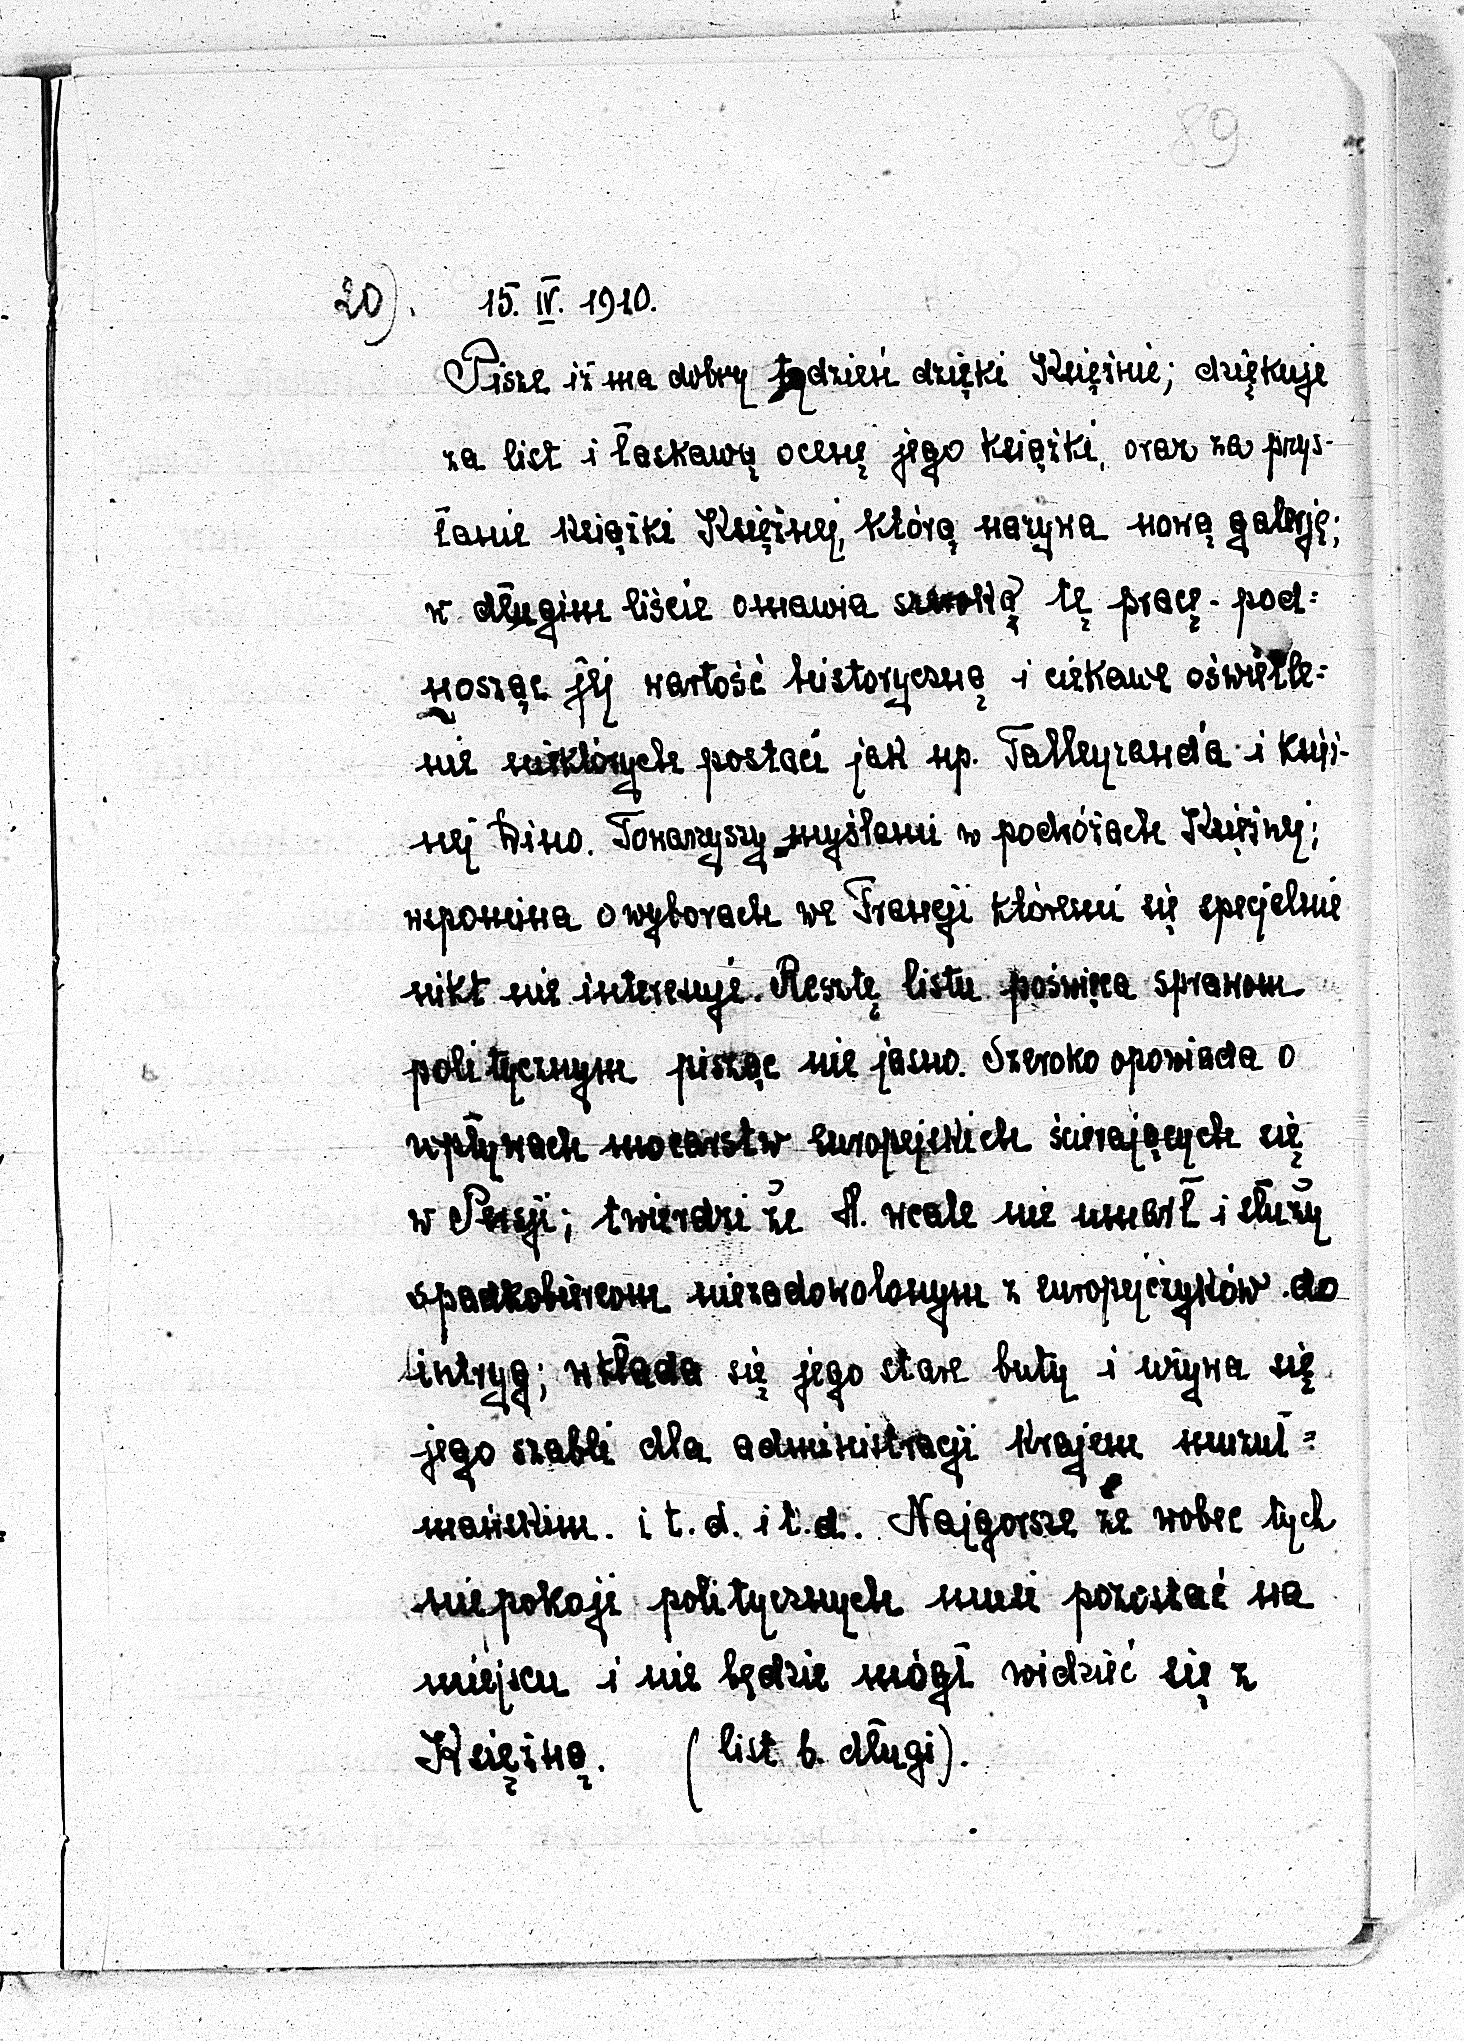 89
20). 15. IV. 1910.
Pisze iż ma dobry tydzień dzięki Księżnie; dziękuje
za list i łaskawą ocenę jego książki, oraz za przys-
łanie książki Księżnej, którą nazywa nową galerję;
w długim liście omawia tę pracę - pod=
nosząc jej wartość historyczną i ciekawe oświetle=
nie niektórych postaci jak np. Talleyrand'a i księż-
nej Dino. Towarzyszy myślami w podróżach Księżnej;
wspomina o wyborach we Francji któremi się specjalnie
nikt nie interesuje. Resztę listu poświęca sprawom
politycznym pisząc nie jasno. Szeroko opowiada o
wpływach mocarstw europejskich ścierających się
w Persji; twierdzi że A. wcale nie umarł i służy
spadkobiercom niezadowolonym z europejczyków do
intryg; wkłada się jego stare buty i używa się
jego szabli dla administracji krajem muzuł=
mańskim. i t. d. i t. d. Najgorsze że wobec tych
niepokoji politycznych musi pozostać na
miejscu i nie będzie mógł widzieć się z
Księżną. (list b. długi).